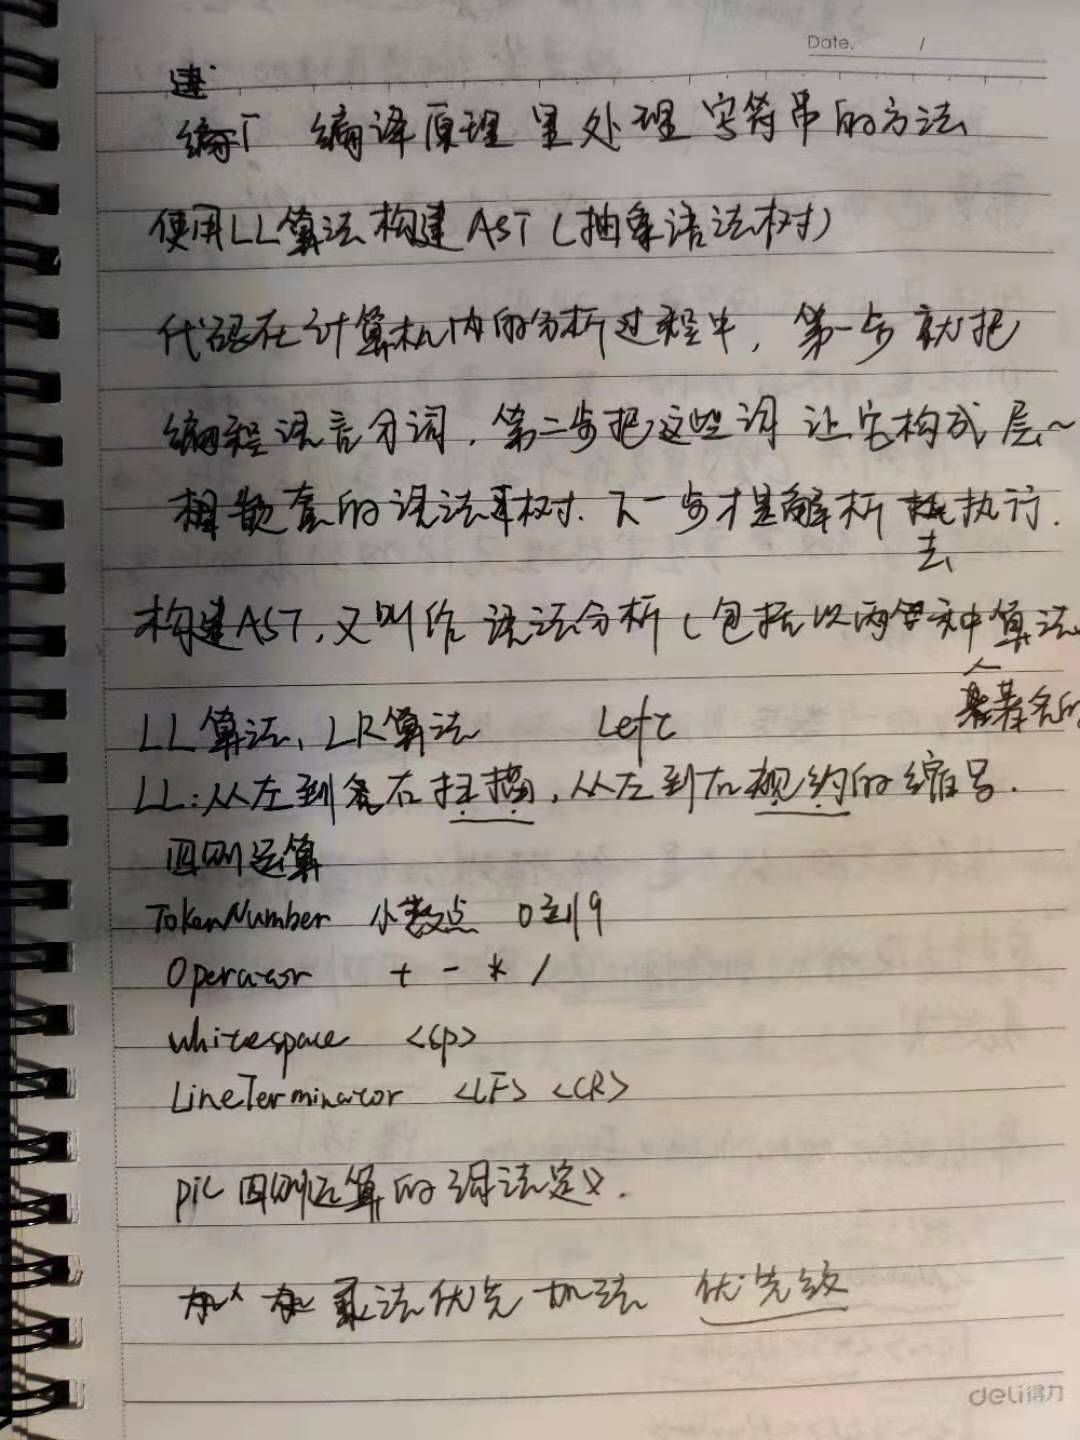 Date. /
编译原理里处理字符串的方法
使用LL算法构建AST(抽象语法树)
代码在计算机内的分析过程中，第一步就把
编程语言分词，第二步把这些词 让它构成层~
相嵌套的语法树. 下一步才是解析 执行.
去
构建AST,又叫作 语法分析(包括以两种算法
著名的
LL算法、LR算法 Left
LL:从左到右扫描,从左到右规约的缩号.
四则运算
TokenNumber 小数点 0到9
Operator + - * /
whitespace <sp>
LineTerminator <LF> <CR>
pic 四则运算的词法定义.
乘法优先 加法 优先级
deli得力